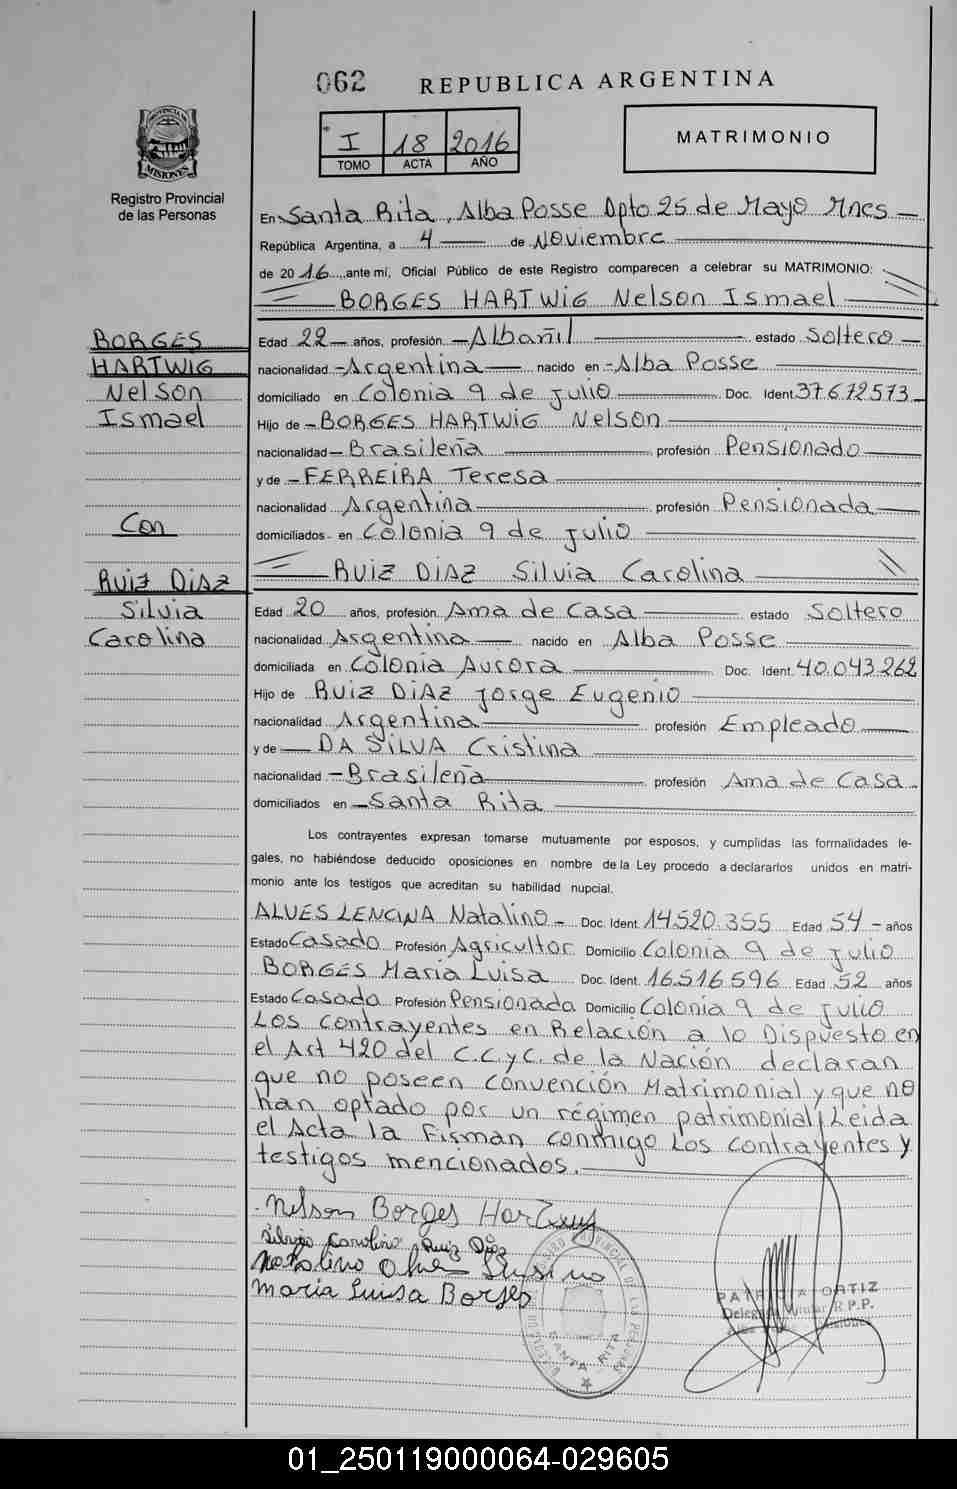 062 REPUBLICA ARGENTINA
PROVINCIA
MISIONES
Registro Provincial
de las Personas
I 18 2016
TOMO ACTA AÑO
MATRIMONIO
En Santa Rita, Alba Posse Dpto 25 de Mayo Mnes
República Argentina, a 4 de Noviembre
de 2016, ante mí, Oficial Público de este Registro comparecen a celebrar su MATRIMONIO:
BORGES HARTWIG Nelson Ismael
BORGES
HARTWIG
Nelson
Ismael
Con
Ruiz Diaz
Silvia
Carolina
Edad 22 años, profesión Albañil estado Soltero
nacionalidad Argentina nacido en Alba Posse
domiciliado en Colonia 9 de julio Doc. Ident. 37.672.573
Hijo de BORGES HARTWIG Nelson
nacionalidad Brasileña profesión Pensionado
y de FERREIRA Teresa
nacionalidad Argentina profesión Pensionada
domiciliados en Colonia 9 de julio
RUIZ DIAZ Silvia Carolina
Edad 20 años, profesión Ama de Casa estado Soltero
nacionalidad Argentina nacido en Alba Posse
domiciliada en Colonia Aurora Doc. Ident. 40.043.262
Hijo de RUIZ DIAZ Jorge Eugenio
nacionalidad Argentina profesión Empleado
y de DA SILVA Cristina
nacionalidad Brasileña profesión Ama de Casa
domiciliados en Santa Rita
Los contrayentes expresan tomarse mutuamente por esposos, y cumplidas las formalidades le-
gales, no habiéndose deducido oposiciones en nombre de la Ley procedo a declararlos unidos en matri-
monio ante los testigos que acreditan su habilidad nupcial.
ALVES LENCINA Natalino Doc. Ident. 14.520.355 Edad 54 años
Estado Casado Profesión Agricultor Domicilio Colonia 9 de julio
BORGES Maria Luisa Doc. Ident. 16.516.596 Edad 52 años
Estado Casada Profesión Pensionada Domicilio Colonia 9 de julio
Los contrayentes en Relación a lo Dispuesto en
el Art 420 del C.C.yC. de la Nación declaran
que no poseen Convención Matrimonial y que no
han optado por un régimen patrimonial, Leida
el Acta la Firman conmigo Los contrayentes y
testigos mencionados.
Nelson Borges Hartwig
Silvia Carolina Ruiz Diaz
Natalino
Maria Luisa Borges
REGISTRO PROVINCIAL DE LAS PERSONAS
SANTA RITA
PATRICIA ORTIZ
Delegada Titular R.P.P.
01_250119000064-029605